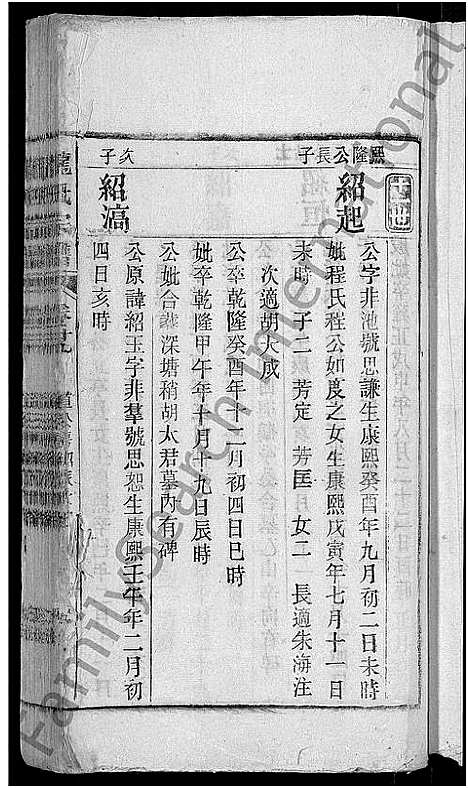 十世
熙隆公長子
紹起
公字非池號思謙生康熙癸酉年九月初二日未時
妣程氏程公如良之女生康熙戊寅年七月十一日
未時 子二 芳定 芳匡 女二 長適朱海注
次適胡大咸
公卒乾隆癸酉年十二月初四日巳時
妣卒乾隆甲午年十月十九日辰時
公妣合葬深塘稍胡太君墓內有碑
次子
紹滈
公原諱紹玉字非羣號思恕生康熙壬午年二月初
四日亥時
FamilySearch International